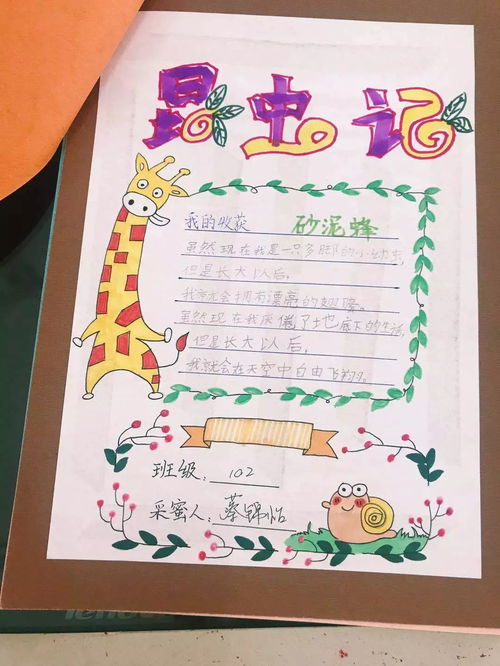 昆虫记
我的收获 砂泥蜂
虽然现在我是一只多脚的小幼虫,
但是长大以后,
我就会拥有漂亮的翅膀。
虽然现在我厌倦了地底下的生活,
但是长大以后,
我就会在天空中自由飞翔。
班级: 102
采蜜人: 蔡锦怡
lenovo